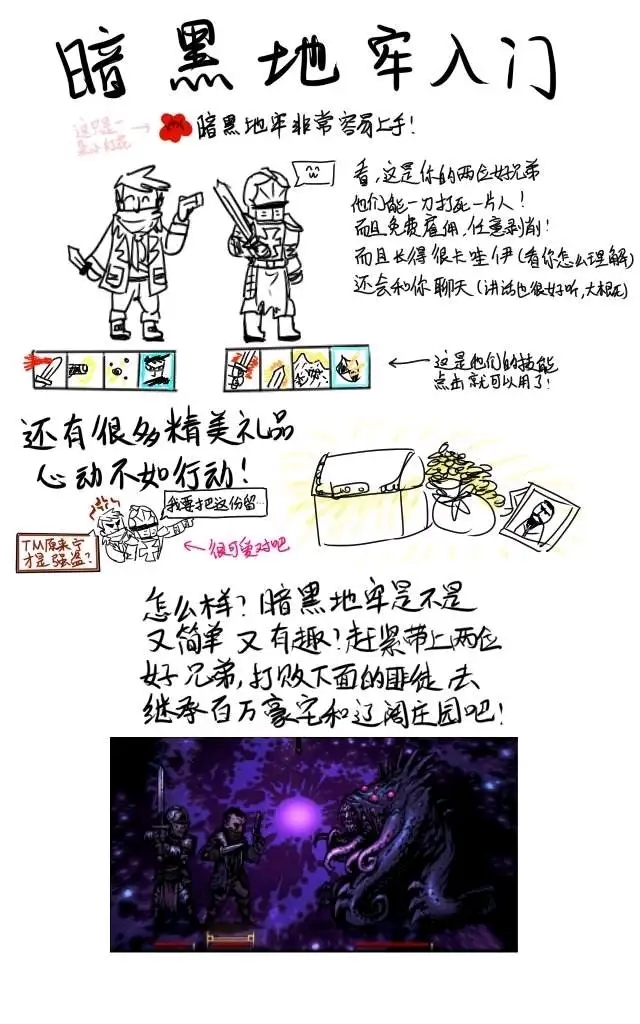 暗黑地牢入门
这只是一
朵小红花
暗黑地牢非常容易上手!
看,这是你的两位好兄弟
他们能一刀打死一片人!
而且免费雇佣,任意剥削!
而且长得很卡哇伊(看你怎么理解)
还会和你聊天(讲话也很好听,大概)
这是他们的技能
点击就可以用了!
还有很多精美礼品
心动不如行动!
我要把这份留…
TM原来守
才是强盗?
很可爱对吧
怎么样?暗黑地牢是不是
又简单又有趣?赶紧带上两位
好兄弟,打败下面的匪徒,去
继承百万豪宅和辽阔庄园吧!